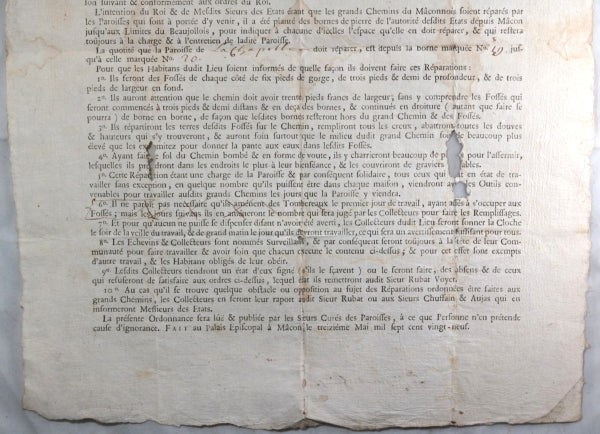 son suivant & conformément aux ordres du Roi.
L'intention du Roi & de Mesdits Sieurs des Etats étant que les grands Chemins du Mâconnois soient réparés
par les Paroisses qui sont à portée d'y venir, il a été planté des bornes de pierre de l'autorité desdits Etats depuis Mâcon
jusqu'aux Limites du Beaujollois, pour indiquer à chacune d'icelles l'espace qu'elle en doit réparer, & qui restera
toujours à la charge & à l'entretien de ladite Paroisse.
La quotité que la Paroisse de doit réparer, est depuis la borne marquée No. 69 jus-
qu'à celle marquée No. 70.
Pour que les Habitans dudit Lieu soient informés de quelle façon ils doivent faire ces Réparations :
1o. Ils feront des Fossés de chaque côté de six pieds de gorge, de trois pieds & demi de profondeur, & de trois
pieds de largeur en fond.
2o. Ils auront attention que le chemin doit avoir trente pieds francs de largeur, sans y comprendre les Fossés qui
seront commencés à trois pieds & demi distans & en deça des bornes, & continués en droiture ( autant que faire se
pourra ) de borne en borne, de façon que lesdites bornes resteront hors du grand Chemin & des Fossés.
3o. Ils répartiront les terres desdits Fossés sur le Chemin, rempliront tous les creux, abattront toutes les douves
& hauteurs qui s'y trouveront, & auront soin surtout que le milieu dudit grand Chemin soit de beaucoup plus
élevé que les extrémitez pour donner la pante aux eaux dans lesdits Fossés.
4o. Ayant fait le sol du Chemin bombé & en forme de voute, ils y charrieront beaucoup de pour l'affermir,
lesquelles ils prendront dans les endroits le plus à leur bienséance, & les couvriront de graviers
5o. Cette Réparation étant une charge de la Paroisse & par conséquent solidaire, tous ceux qui en état de tra-
vailler sans exception, en quelque nombre qu'ils puissent être dans chaque maison, viendront les Outils con-
venables pour travailler ausdits grands Chemins les jours que la Paroisse y viendra.
6o. Il ne paroît pas nécessaire qu'ils amènent des Tombereaux le premier jour de travail, ayant assés à s'occuper aux
Fossés; mais les jours suivans ils en amèneront le nombre qui sera jugé par les Collecteurs pour faire les Remplissages.
7o. Et pour qu'aucun ne puisse se dispenser disant n'avoir été averti, les Collecteurs dudit Lieu feront sonner la Cloche
le soir de la veille du travail, & de grand matin le jour qu'ils devront travailler, ce qui sera un avertissement suffisant pour tous.
8o. Les Echevins & Collecteurs sont nommés Surveillans, & par conséquent seront toujours à la tête de leur Com-
munauté pour faire travailler & avoir soin que chacun execute le contenu ci-dessus; & pour cet effet sont exempts
d'autre travail, & les Habitans obligés de leur obéir.
9o. Lesdits Collecteurs tiendront un état d'eux signé (s'ils le sçavent) ou le feront faire, des absens & de ceux
qui refuseront de satisfaire aux ordres ci-dessus, lequel état ils remettront audit Sieur Rubat Voyer.
10o. Au cas qu'il se trouve quelque obstacle ou opposition au sujet des Réparations ordonnées être faites aux
grands Chemins, les Collecteurs en feront leur raport audit Sieur Rubat ou aux Sieurs Chussain & Aujas qui en
informeront Messieurs des Etats.
La présente Ordonnance sera lûë & publiée par les Sieurs Curés des Paroisses, à ce que Personne n'en prétende
cause d'ignorance. FAIT au Palais Episcopal à Mâcon le treizième Mai mil sept cent vingt-neuf.